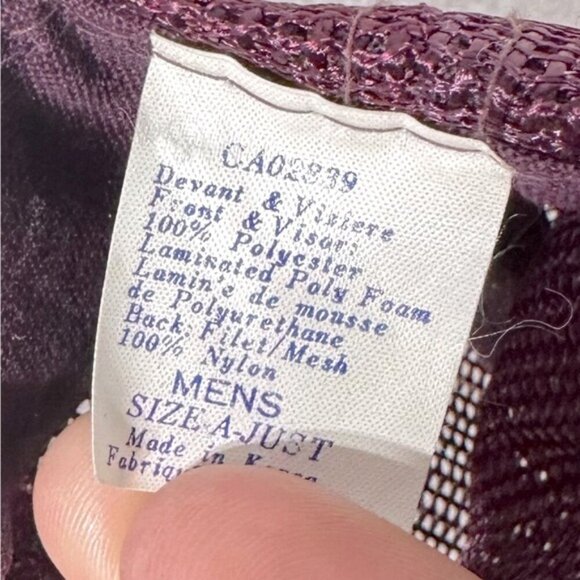 CA02839
Devant & Visiere
Front & Visor:
100% Polyester
Laminated Poly Foam
Lamin'e de mousse
de Polyurethane
Back: Filet/Mesh
100% Nylon
MENS
SIZE A-JUST
Made in Korea